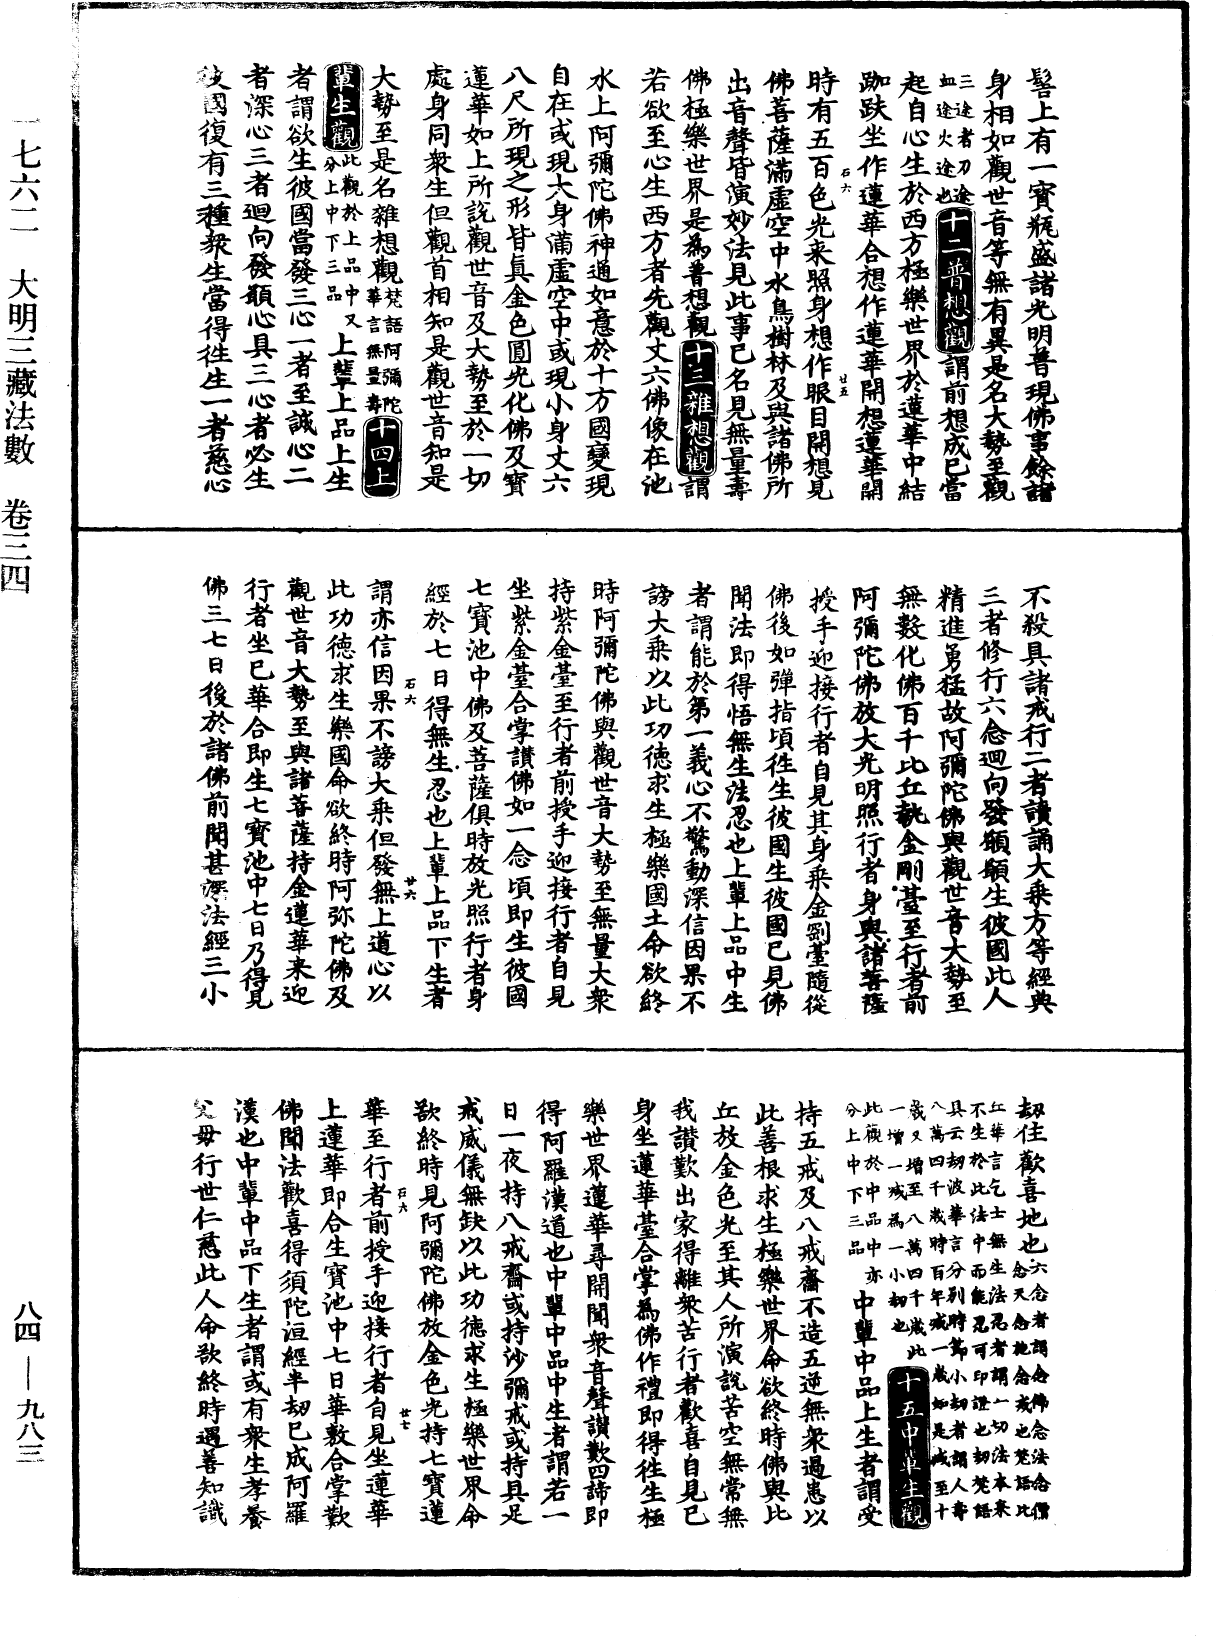 一七六二　大明三藏法數　卷三四
髻上有一寶瓶盛諸光明普現佛事餘諸
身相如觀世音等無有異是名大勢至觀
三途者刀途
血途火途也
十二普想觀
謂前想成已當
起自心生於西方極樂世界於蓮華中結
跏趺坐作蓮華合想作蓮華開想蓮華開
石六
廿五
時有五百色光来照身想作眼目開想見
佛菩薩滿虛空中水鳥樹林及與諸佛所
出音聲皆演妙法見此事已名見無量壽
佛極樂世界是為普想觀
十三雜想觀
謂
若欲至心生西方者先觀丈六佛像在池
水上阿彌陀佛神通如意於十方國變現
自在或現大身滿虛空中或現小身丈六
八尺所現之形皆眞金色圓光化佛及寶
蓮華如上所說觀世音及大勢至於一切
處身同衆生但觀首相知是觀世音知是
大勢至是名雜想觀
梵語阿彌陀
華言無量壽
十四上
輩生觀
此觀於上品中又
分上中下三品
上輩上品上生
者謂欲生彼國當發三心一者至誠心二
者深心三者迴向發願心具三心者必生
彼國復有三種衆生當得徃生一者慈心
不殺具諸戒行二者讀誦大乗方等經典
三者修行六念迴向發願願生彼國此人
精進勇猛故阿彌陀佛與觀世音大勢至
無數化佛百千比丘執金剛臺至行者前
阿彌陀佛放大光明照行者身與諸菩薩
授手迎接行者自見其身乗金剛臺隨從
佛後如彈指頃徃生彼國生彼國已見佛
聞法即得悟無生法忍也上輩上品中生
者謂能於第一義心不驚動深信因果不
謗大乗以此功德求生極樂國土命欲終
時阿彌陀佛與觀世音大勢至無量大衆
持紫金臺至行者前授手迎接行者自見
坐紫金臺合掌讃佛如一念頃即生彼國
七寶池中佛及菩薩俱時放光照行者身
經於七日得無生忍也上輩上品下生者
石六
廿六
謂亦信因果不謗大乗但發無上道心以
此功德求生樂國命欲終時阿弥陀佛及
觀世音大勢至與諸菩薩持金蓮華来迎
行者坐已華合即生七寶池中七日乃得見
佛三七日後於諸佛前聞甚深法經三小
劫住歡喜地也
六念者謂念佛念法念僧
念天念施念戒也梵語比
丘華言乞士無生法忍者謂一切法本来
不生於此法中而能忍可印證也劫梵語
具云劫波華言分别時節小劫者謂人壽
八萬四千歲時百年減一歲如是減至十
歲又增至八萬四千歲此
一增一減為一小劫也
十五中輩生觀
此觀於中品中亦
分上中下三品
中輩中品上生者謂受
持五戒及八戒齋不造五逆無衆過患以
此善根求生極樂世界命欲終時佛與比
丘放金色光至其人所演說苦空無常無
我讃歎出家得離衆苦行者歡喜自見已
身坐蓮華臺合掌為佛作禮即得徃生極
樂世界蓮華尋開聞衆音聲讃歎四諦即
得阿羅漢道也中輩中品中生者謂若一
日一夜持八戒齋或持沙彌戒或持具足
戒威儀無缺以此功德求生極樂世界命
欲終時見阿彌陀佛放金色光持七寶蓮
石六
廿七
華至行者前授手迎接行者自見坐蓮華
上蓮華即合生寶池中七日華敷合掌歎
佛聞法歡喜得須陀洹經半劫已成阿羅
漢也中輩中品下生者謂或有衆生孝養
父母行世仁慈此人命欲終時遇善知識
八四—九八三